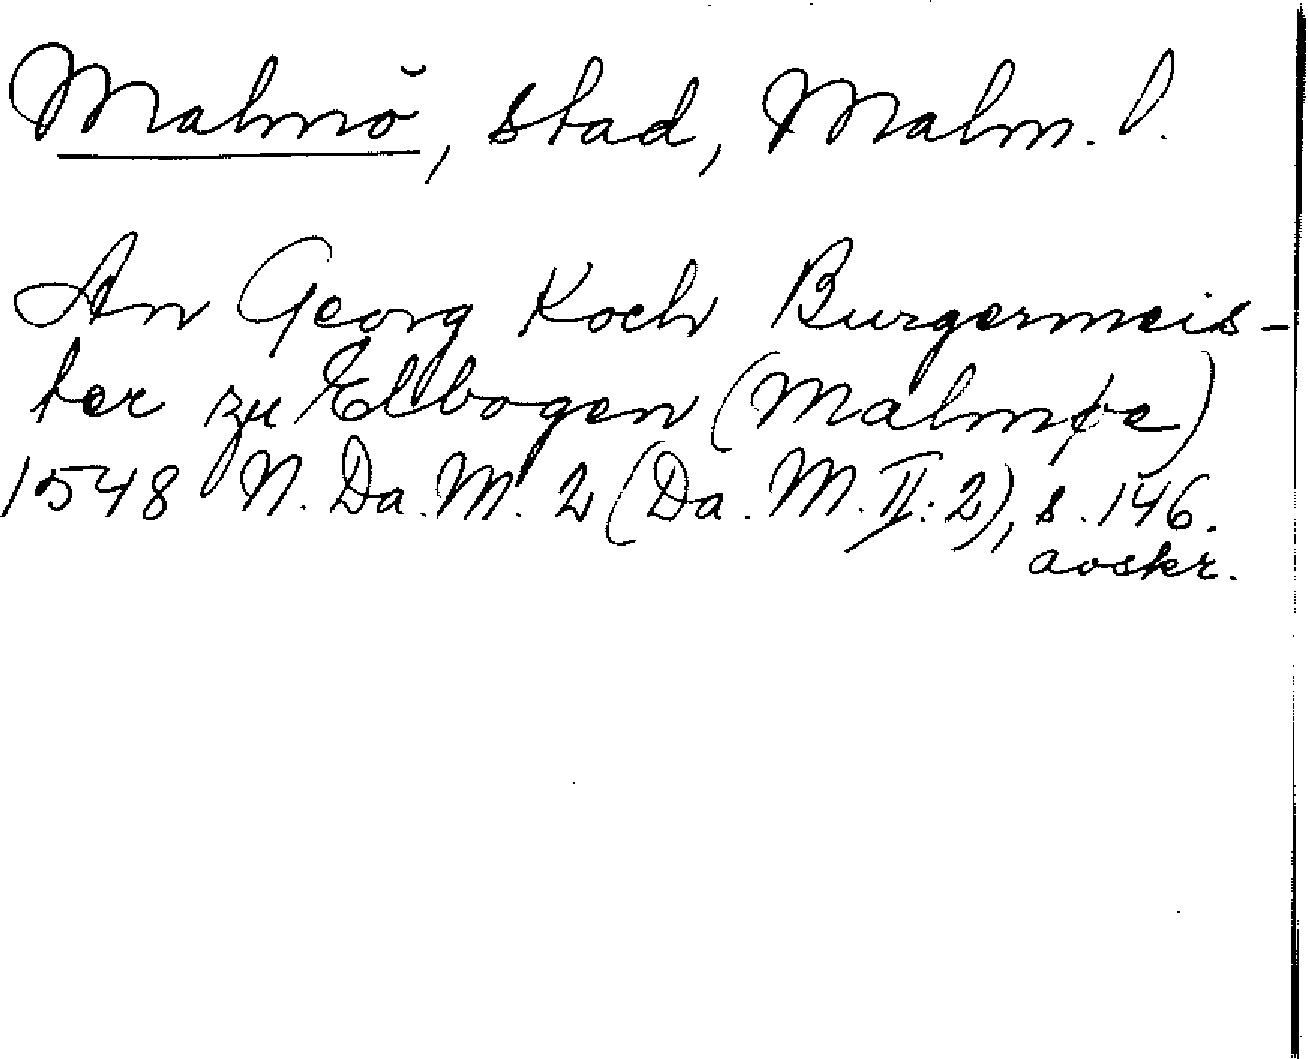 Malmö, stad, Malm. l.
An Georg Koch Burgermeis-
ter zu Elbogen (Malmøe)
1548 N. Da. M. 2 (Da. M. II: 2), s. 146.
avskr.